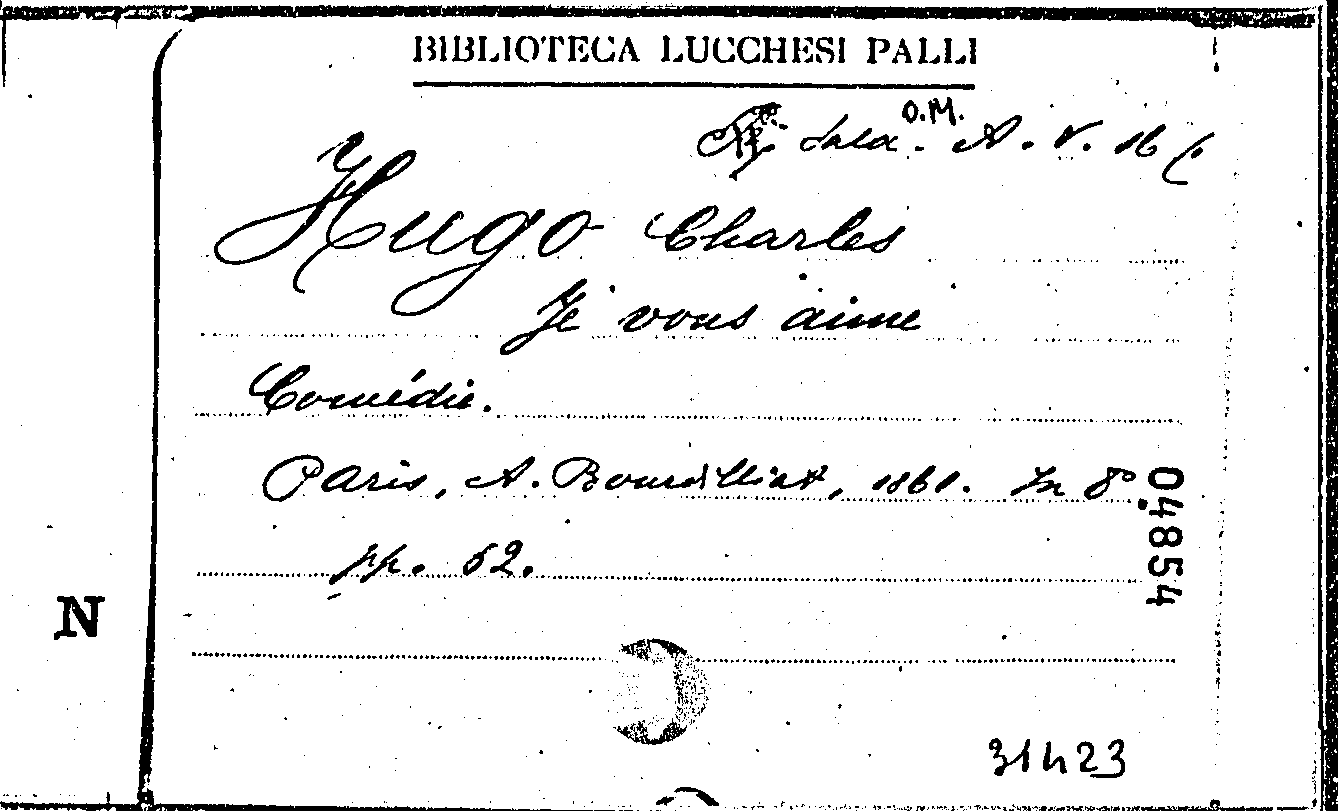 BIBLIOTECA LUCCHESI PALLI
O.M.
Sala. A. V. 16
Hugo Charles
Je vous aime
Comédie.
Paris, A. Bourdilliat, 1861. In 8°
pp. 52.
04854
N
31423